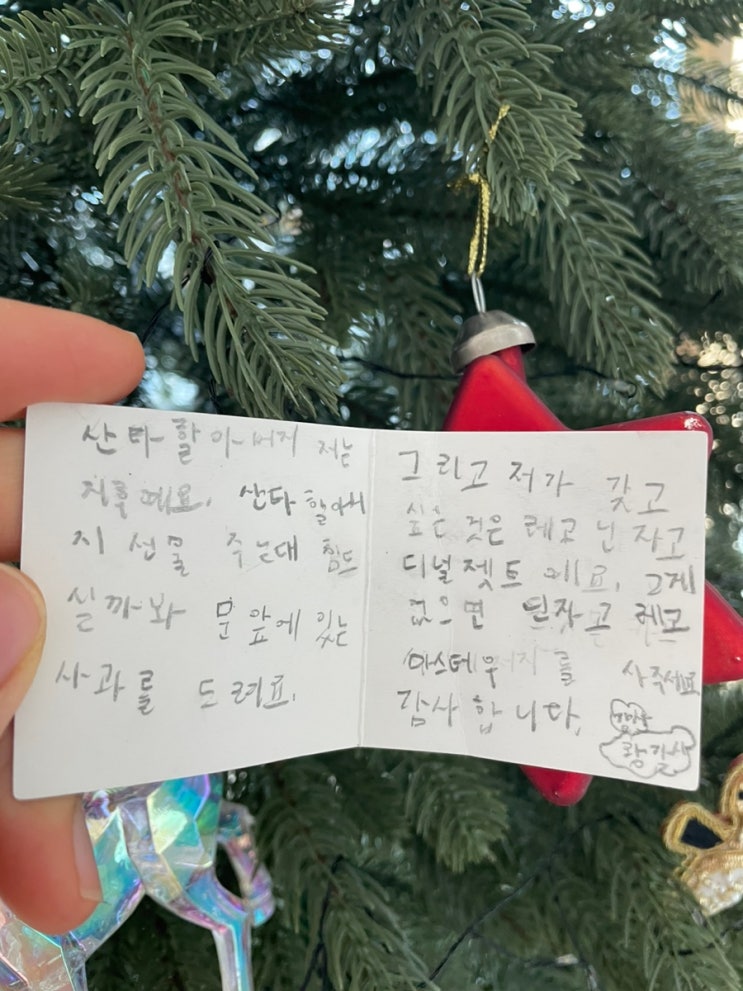 산타할아버지 저는
지후예요. 산타 할아버
지 선물 주는대 힘드
실까봐 문 앞에 있는
사과를 드려요.
그리고 저가 갖고
싶은 것은 레고 닌자고
디널젯트 에요. 그게
없으면 닌자고 레고
마스테우 를 사주세요
감사합니다.
항상